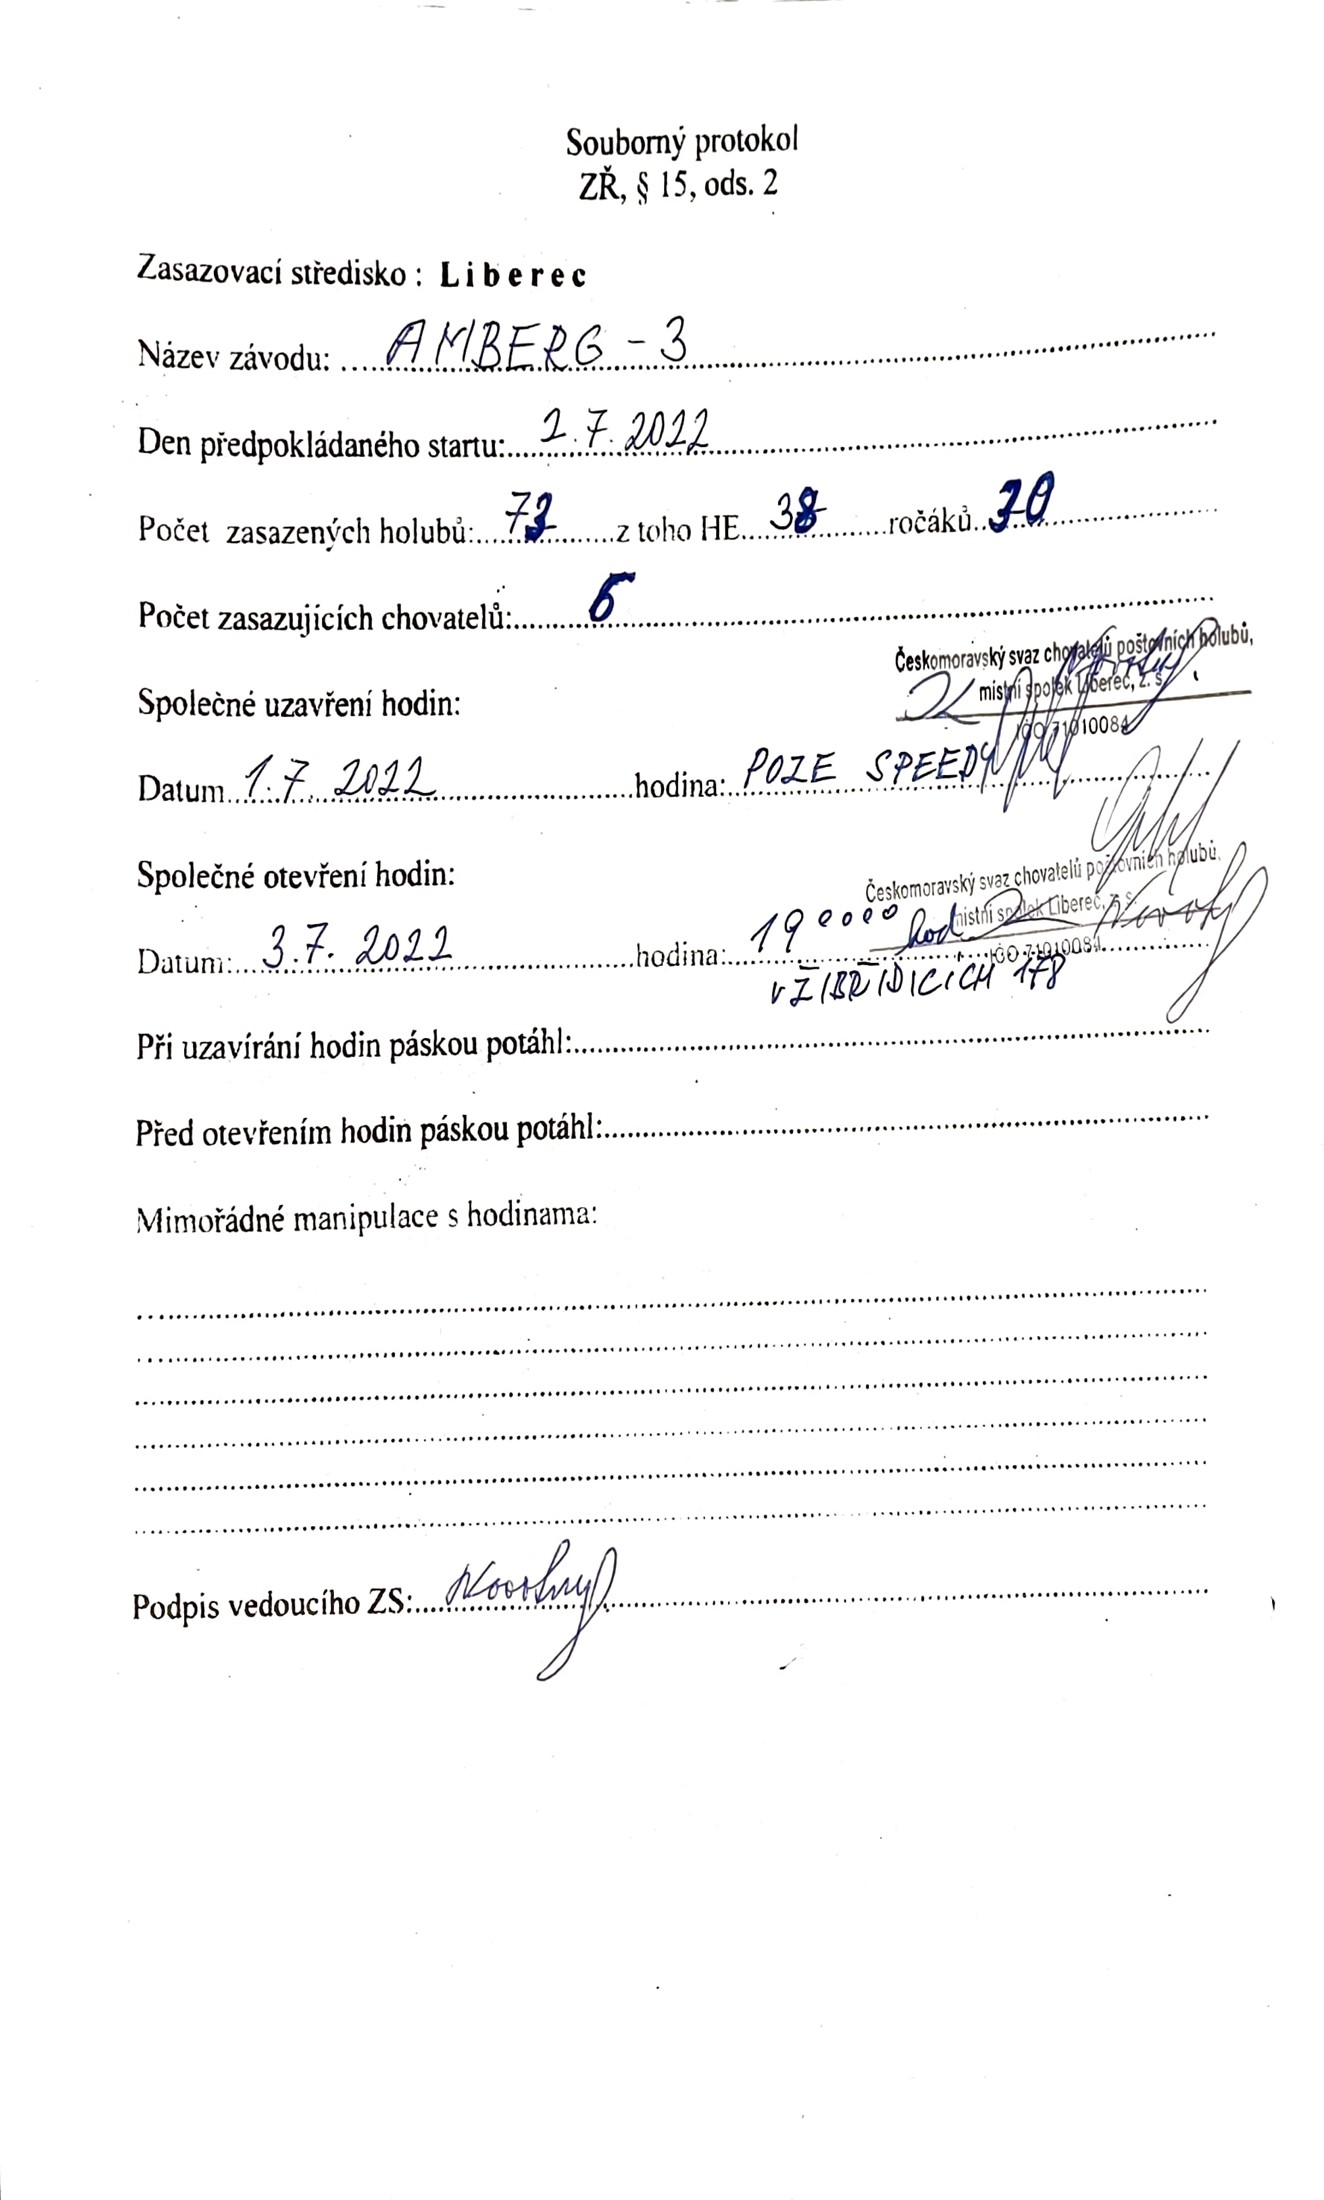 Souborný protokol
ZŘ, § 15, ods. 2
Zasazovací středisko : Liberec
Název závodu: AMBERG - 3
Den předpokládaného startu: 2.7.2022
Počet zasazených holubů: z toho HE 38 ročáků
Počet zasazujících chovatelů:
Českomoravský svaz chovatelů poštovních holubů,
místní spolek Liberec, z. s.
IČO 71010084
Společné uzavření hodin:
Datum 1.7. 2022 hodina: POZE SPEEDY
Společné otevření hodin:
Českomoravský svaz chovatelů poštovních holubů,
místní spolek Liberec, z. s.
IČO 71010084
Datum: 3.7. 2022 hodina: 19 0000 hod
v ŽIBŘIDICÍCH 178
Při uzavírání hodin páskou potáhl:
Před otevřením hodin páskou potáhl:
Mimořádné manipulace s hodinama:
Podpis vedoucího ZS: Novotný